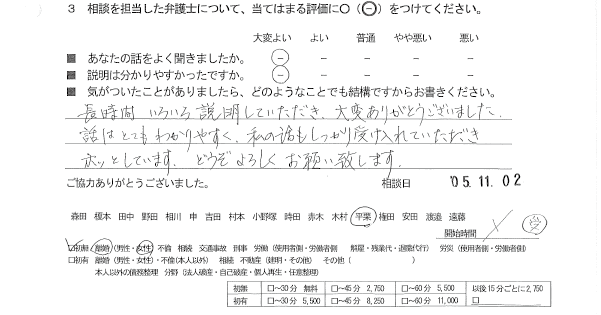 3 相談を担当した弁護士について、当てはまる評価に○(⊖)をつけてください。
大変よい よい 普通 やや悪い 悪い
■ あなたの話をよく聞きましたか。 － － － － －
■ 説明は分かりやすかったですか。 － － － － －
■ 気がついたことがありましたら、どのようなことでも結構ですからお書きください。
長時間 いろいろ説明していただき、大変ありがとうございました。
話はとてもわかりやすく、私の話もしっかり受け入れていただき
ホッとしています。どうぞよろしくお願い致します。
ご協力ありがとうございました。 相談日 '05.11.02
森田 榎本 田中 野田 相川 申 吉田 村本 小野塚 時田 赤木 木村 平栗 権田 安田 渡邉 遠藤
開始時間
□初無 離婚(男性・女性) 不倫 相続 交通事故 刑事 労働(使用者側・労働者側) 解雇・残業代・退職代行) 労災(使用者側・労働者側)
□初有 離婚(男性・女性)・不倫(本人以外) 相続 不動産(建明・その他) その他( )
本人以外の債務整理 分野(法人破産・自己破産・個人再生・任意整理)
初無 □～30分 無料 □～45分 2,750 □～60分 5,500 以後15分ごとに2,750
初有 □～30分 5,500 □～45分 8,250 □～60分 11,000 □